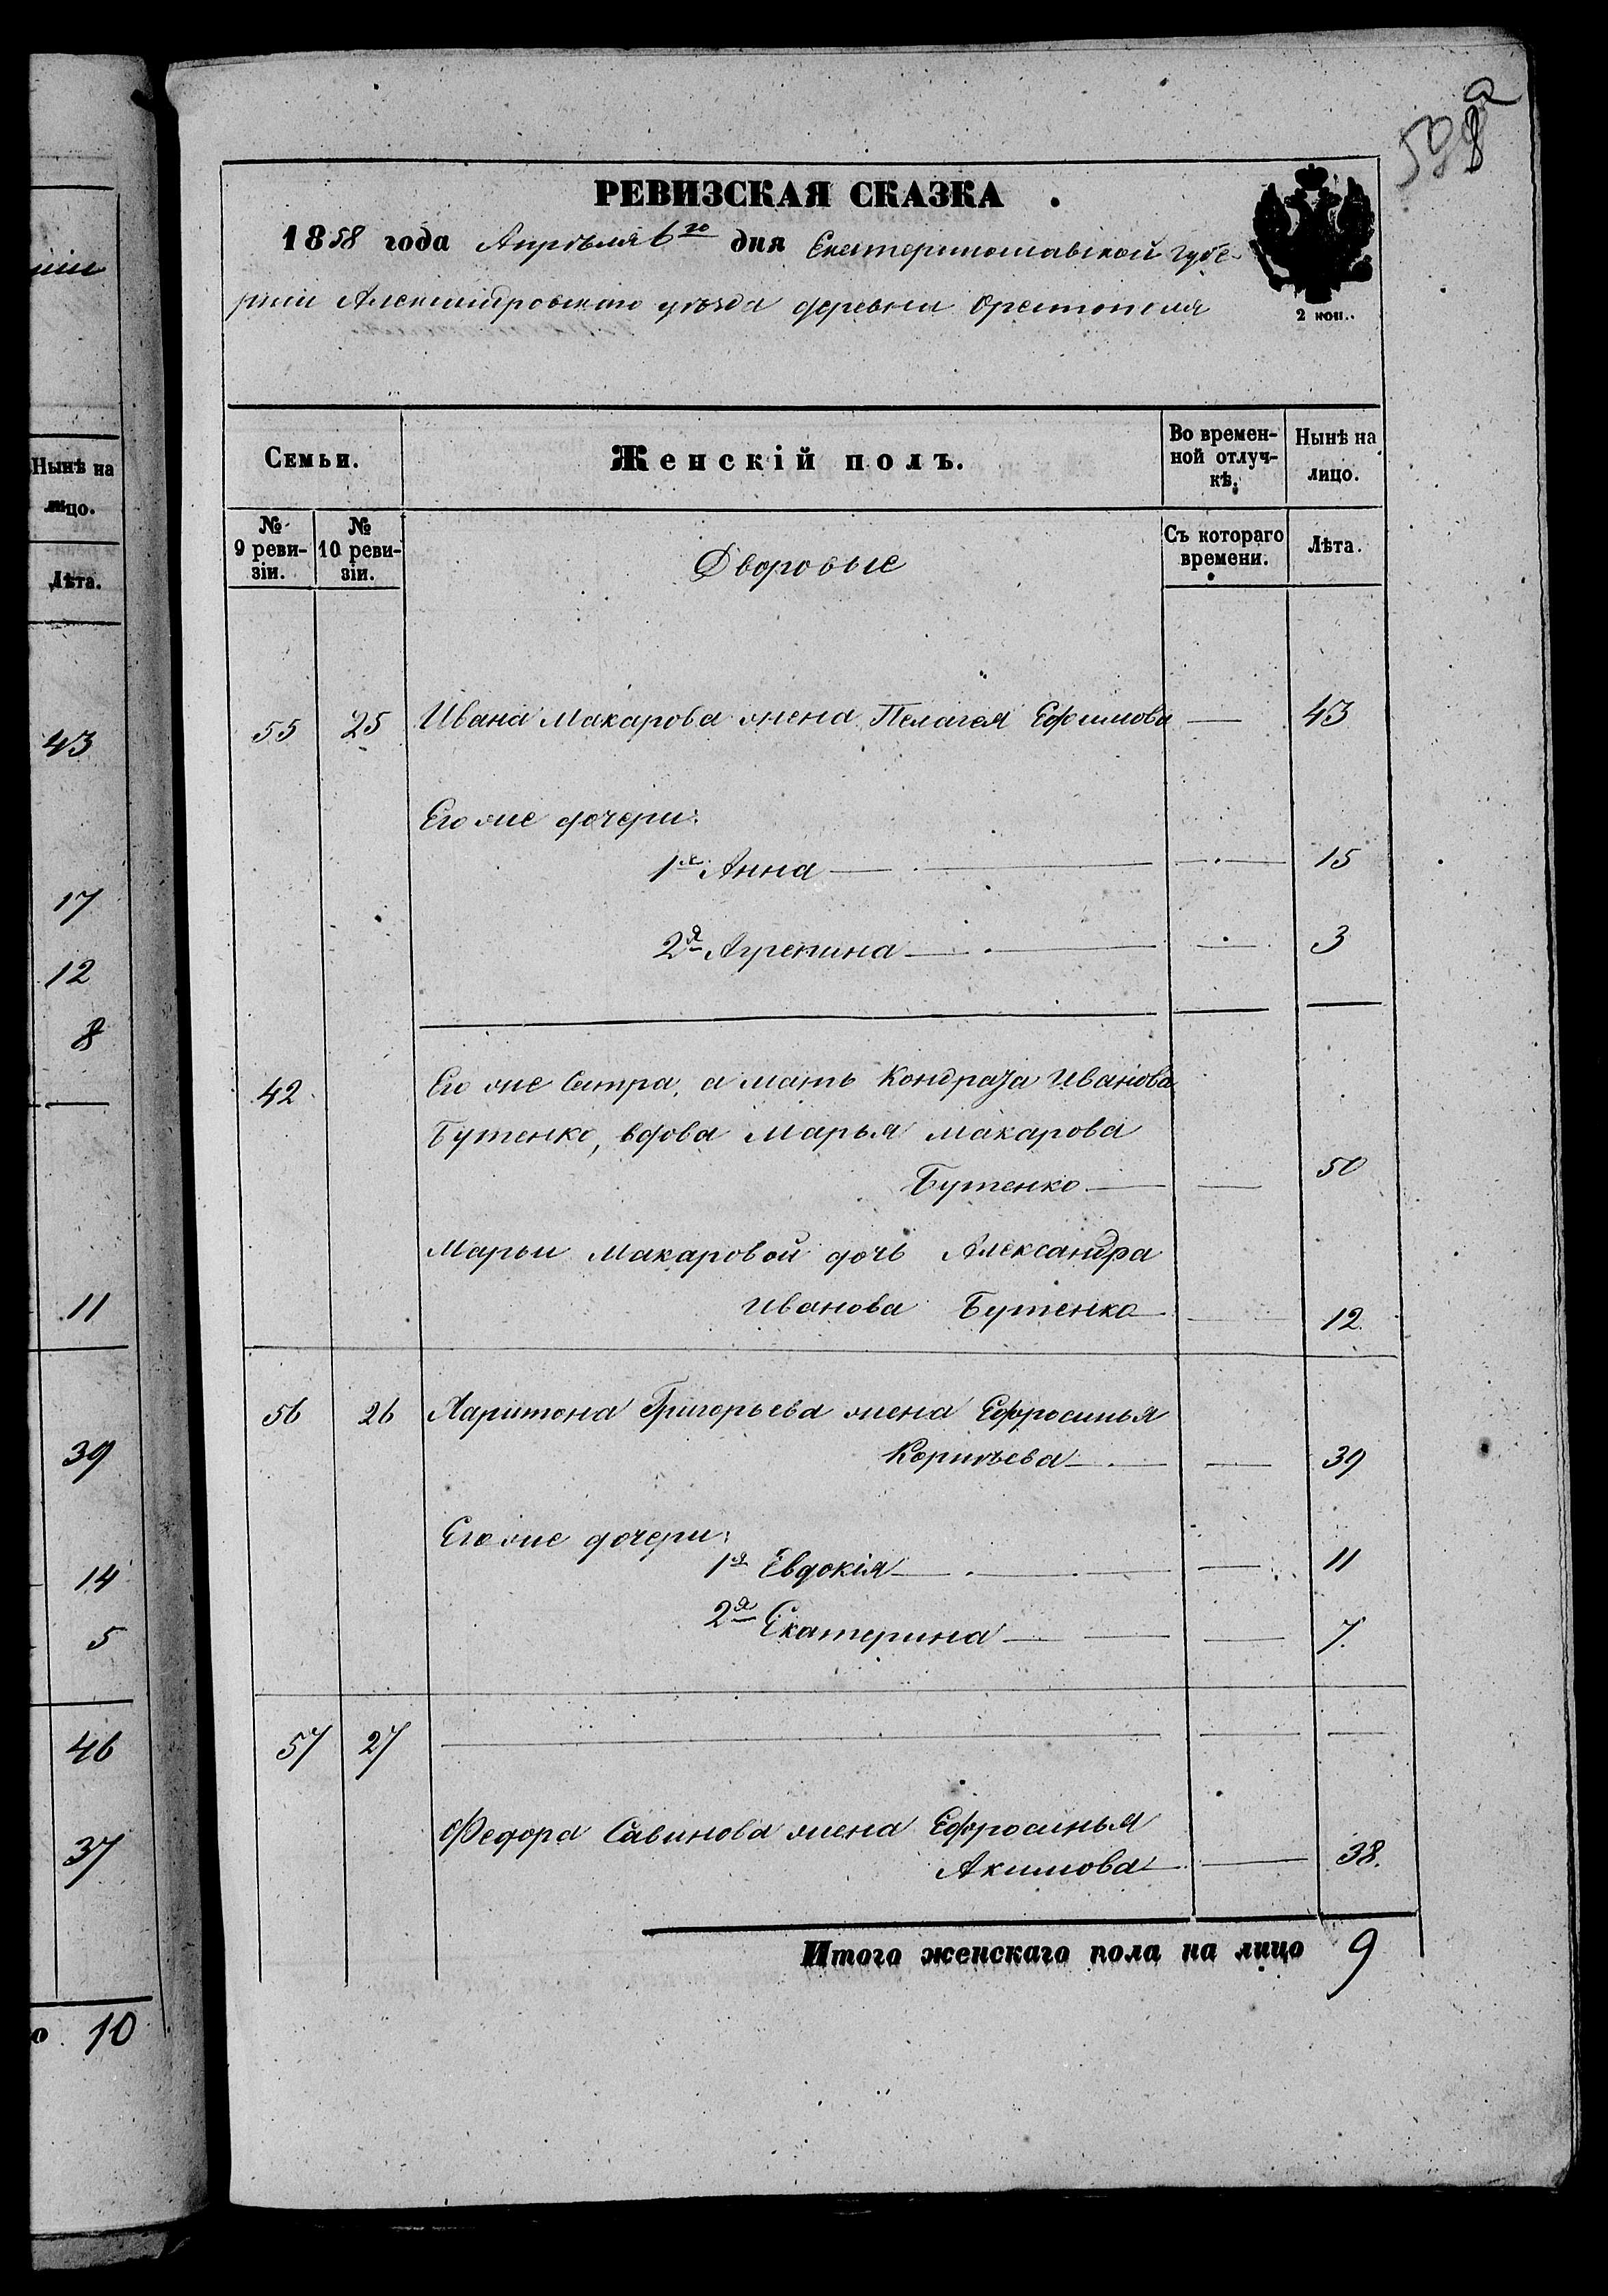 ніи
Нынѣ на
лицо.
Лѣта.
43
17
12
8
11
39
14
5
46
37
о 10
РЕВИЗСКАЯ СКАЗКА.
1858 года Апрѣля 6го дня Екатеринославской губе-
рніи Александровскаго уѣзда деревни Орестополя
2 коп.
Семьи.
Женскій полъ.
Во времен-
ной отлуч-
кѣ.
Нынѣ на
лицо.
№
9 реви-
зіи.
№
10 реви-
зіи.
Дворовые
Съ котораго
времени.
Лѣта.
55 25 Ивана Макарова жена Пелагея Ефимова — 43
Его же дочери:
1я Анна — 15
2я Агрепина — 3
42 Его же Сестра, а мать Кондрата Иванова
Бутенко, вдова Марья Макарова
Бутенко — 50
Марьи Макаровой дочь Александра
Иванова Бутенко — 12
56 26 Харитона Григорьева жена Ефросинья
Корнѣева — 39
Его же дочери:
1я Евдокія — 11
2я Екатерина — 7
57 27 —
Федора Савинова жена Ефросинья
Акимова — 38.
Итого женскаго пола на лицо 9